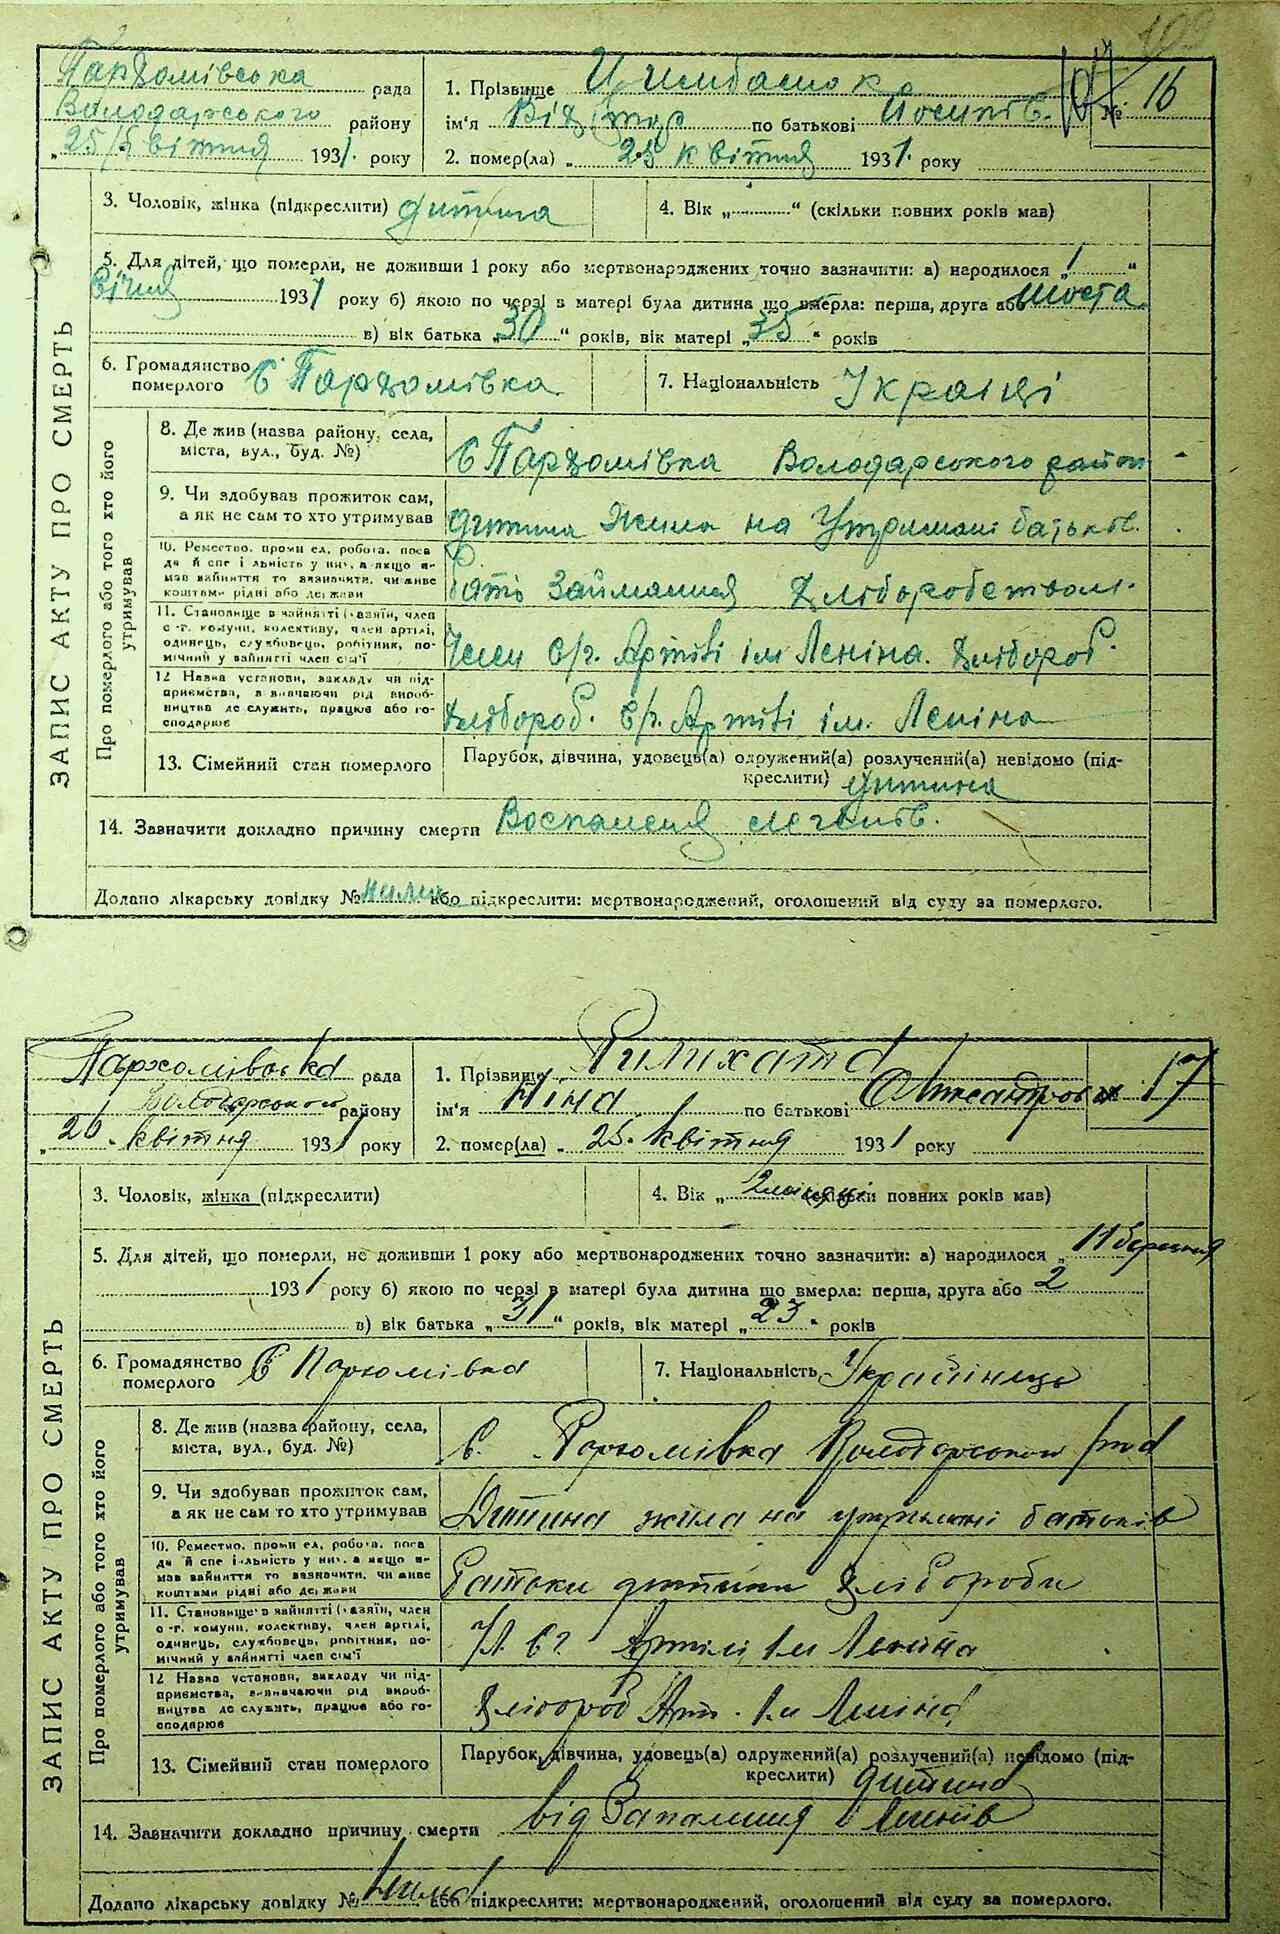 Пархомівська рада
Володарського району
„25/квітня 1931. року
1. Прізвище Цимбалюк
ім'я Віхтор по батькові Йосипів.
№ 16
2. помер(ла) „ 25 квітня 1931. року
3. Чоловік, жінка (підкреслити) дитина
4. Вік „............“ (скільки повних років мав)
5. Для дітей, що померли, не доживши 1 року або мертвонароджених точно зазначити: а) народилося „1“
Січня 1931 року б) якою по черзі в матері була дитина що вмерла: перша, друга або шоста
в) вік батька „30“ років, вік матері „35“ років
6. Громадянство померлого с Пархомівка
7. Національність Украінці
ЗАПИС АКТУ ПРО СМЕРТЬ
Про померлого або того хто його утримував
8. Де жив (назва району, села, міста, вул., буд. №)
с Пархомівка Володарського район
9. Чи здобував прожиток сам, а як не сам то хто утримував
дитина Жила на Утримані батьків.
10. Ремество, промисел, робота, посада й спеціальність у них, а якщо не мав зайняття то зазначити, чи живе коштами рідні або держави
батько Займання хліборобством.
11. Становище в зайнятті (хазяїн, член с.-г. комуни, колективу, член артілі, одинець, службовець, робітник, помічний у зайнятті член сім'ї
Член с/г. Артілі ім Леніна. хлібороб.
12 Назва установи, закладу чи підприємства, зазначаючи рід виробництва де служить, працює або господарює
хлібороб. с/г. Артілі ім. Леніна
13. Сімейний стан померлого
Парубок, дівчина, удовець(а) одружений(а) розлучений(а) невідомо (підкреслити) дитина
14. Зазначити докладно причину смерти Воспаленя легенів.
Додано лікарську довідку № нима або підкреслити: мертвонароджений, оголошений від суду за померлого.
Пархомівська рада
Володарського району
„26. квітня 1931 року
1. Прізвище
ім'я Ніна по батькові Олександров
17
2. помер(ла) „ 25. квітня 1931 року
3. Чоловік, жінка (підкреслити)
4. Вік „2 місяці (скільки повних років мав)
5. Для дітей, що померли, не доживши 1 року або мертвонароджених точно зазначити: а) народилося „11 березня
1931 року б) якою по черзі в матері була дитина що вмерла: перша, друга або 2
в) вік батька „31“ років, вік матері „23“ років
6. Громадянство померлого С Пархомівка
7. Національність Українець
ЗАПИС АКТУ ПРО СМЕРТЬ
Про померлого або того хто його утримував
8. Де жив (назва району, села, міста, вул., буд. №)
с. Пархомівка Володарського
9. Чи здобував прожиток сам, а як не сам то хто утримував
Дитина жила на утриманні батьків
10. Ремество, промисел, робота, посада й спеціальність у них, а якщо не мав зайняття то зазначити, чи живе коштами рідні або держави
Батьки дитини хлібороби
11. Становище в зайнятті (хазяїн, член с.-г. комуни, колективу, член артілі, одинець, службовець, робітник, помічний у зайнятті член сім'ї
Чл. сг. Артілі Ім Леніна
12 Назва установи, закладу чи підприємства, зазначаючи рід виробництва де служить, працює або господарює
хлібороб Арт. Ім Леніна
13. Сімейний стан померлого
Парубок, дівчина, удовець(а) одружений(а) розлучений(а) невідомо (підкреслити) дитина
14. Зазначити докладно причину смерти від Запалиня Легенів
Додано лікарську довідку № нима або підкреслити: мертвонароджений, оголошений від суду за померлого.